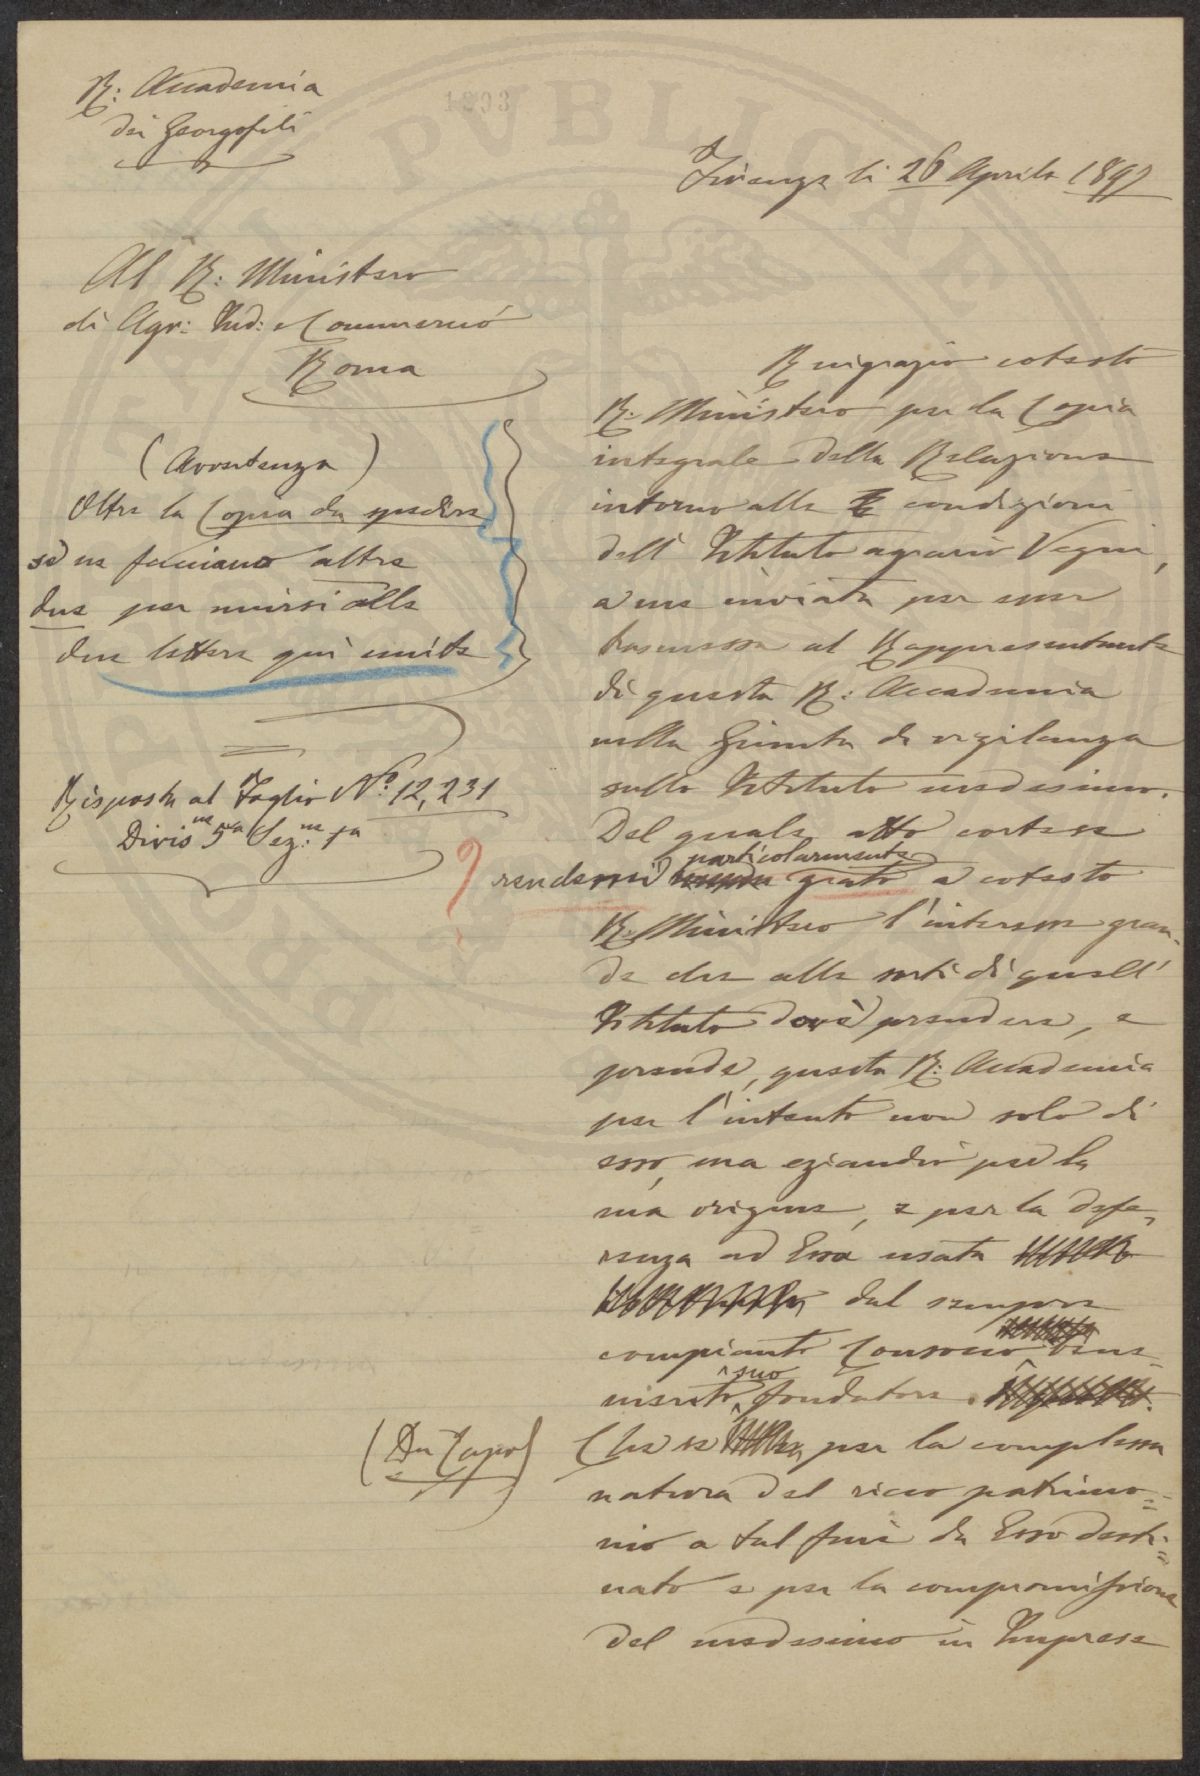 R: Accademia
dei Georgofili
1893
Firenze li 26 Aprile 1897
Al R: Ministero
di Agr: Ind: e Commercio
Roma
(Avvertenza)
Oltre la Copia da spedire
se ne facciano altre
due per unirsi alle
due lettere qui unite
Risposta al Foglio N.° 12,231
Divis.ne 5.a Sez.ne 1.a
Ringrazio cotesto
R. Ministero per la Copia
integrale della Relazione
intorno alle condizioni
dell'Istituto agrario Vegni,
a me inviata per esser
trasmessa al Rappresentante
di questa R: Accademia
nella Giunta di vigilanza
sullo Istituto medesimo.
Del quale atto cortese
rendemi particolarmente grato a cotesto
R. Ministero l'interesse gran-
de che alle sorti di quell'
Istituto dovè prendere, e
prende, questa R: Accademia
per l'intento non solo di
esso, ma eziandio per la
sua origine, e per la defe-
renza ad Essa usata
dal sempre
compianto Consocio bene-
merito suo fondatore.
(Da Capo)
Che se per la complessa
natura del ricco patrimo=
nio a tal fine da Esso desti=
nato e per la compromissione
del medesimo in Imprese